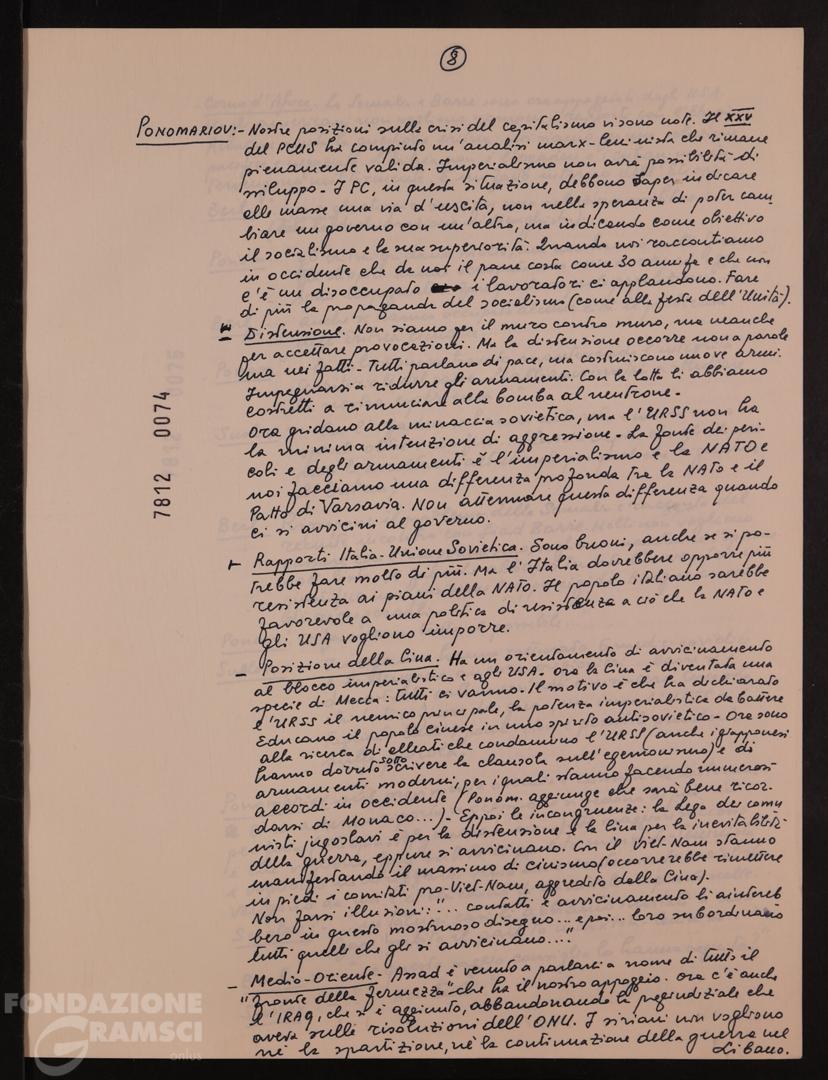 8
PONOMARIOV:- Nostre posizioni sulla crisi del capitalismo vi sono note. Il XXV
del PCUS ha compiuto un'analisi marx-leninista che rimane
pienamente valida. Imperialismo non avrà possibilità di
sviluppo. I PC, in questa situazione, debbono saper indicare
alle masse una via d'uscita, non nella speranza di poter cam
biare un governo con un'altro, ma indicando come obiettivo
il socialismo e la sua superiorità. Quando noi raccontiamo
in occidente che da noi il pane costa come 30 anni fa e che non
c'è un disoccupato i lavoratori ci applaudono. Fare
di più la propaganda del socialismo (come alla festa dell'Unità).
Distensione. Non siamo per il muro contro muro, ma neanche
per accettare provocazioni. Ma la distensione occorre non a parole
ma nei fatti. Tutti parlano di pace, ma costruiscono nuove armi.
Impegnarsi a ridurre gli armamenti. Con la lotta li abbiamo
costretti a rinunciare alla bomba al neutrone.
Ora gridano alla minaccia sovietica, ma l'URSS non ha
la minima intenzione di aggressione. La fonte dei peri-
coli e degli armamenti è l'imperialismo e la NATO e
noi facciamo una differenza profonda tra la NATO e il
Patto di Varsavia. Non attenuare questa differenza quando
ci si avvicini al governo.
- Rapporti Italia-Unione Sovietica. Sono buoni, anche se si po-
trebbe fare molto di più. Ma l'Italia dovrebbe opporre più
resistenza ai piani della NATO. Il popolo italiano sarebbe
favorevole a una politica di resistenza a ciò che la NATO e
gli USA vogliono imporre.
- Posizione della Cina. Ha un orientamento di avvicinamento
al blocco imperialistico e agli USA. Ora la Cina è diventata una
specie di Mecca: tutti ci vanno. Il motivo è che ha dichiarato
l'URSS il nemico principale, la potenza imperialistica da battere
Educano il popolo cinese in uno spirito antisovietico. Ora sono
alla ricerca di alleati che condannino l'URSS (anche i giapponesi
hanno dovuto sottoscrivere la clausola sull'egemonismo) e di
armamenti moderni, per i quali stanno facendo numerosi
accordi in occidente (Ponom. aggiunge che sarà bene ricor.
darsi di Monaco...). Eppoi le incongruenze: la Lega dei comu
nisti jugoslavi è per la distensione e la Cina per la inevitabilità
della guerra, eppure si avvicinano. Con il Viet-Nam stanno
manifestando il massimo di cinismo (occorrerebbe rimettere
in piedi i comitati pro-Viet-Nam, aggredito dalla Cina).
Non farsi illusioni: "... contatti e avvicinamento li aiutereb
bero in questo mostruoso disegno... e poi... loro subordinano
tutti quelli che gli si avvicinano..."
- Medio-Oriente. Assad è venuto a parlarci a nome di tutto il
"fronte della fermezza" che ha il nostro appoggio. Ora c'è anche
l'IRAQ, che si è aggiunto, abbandonando la pregiudiziale che
aveva sulle risoluzioni dell'ONU. I siriani non vogliono
né la spartizione, né la continuazione della guerra nel
Libano.
7812 0074
FONDAZIONE
GRAMSCI
onlus